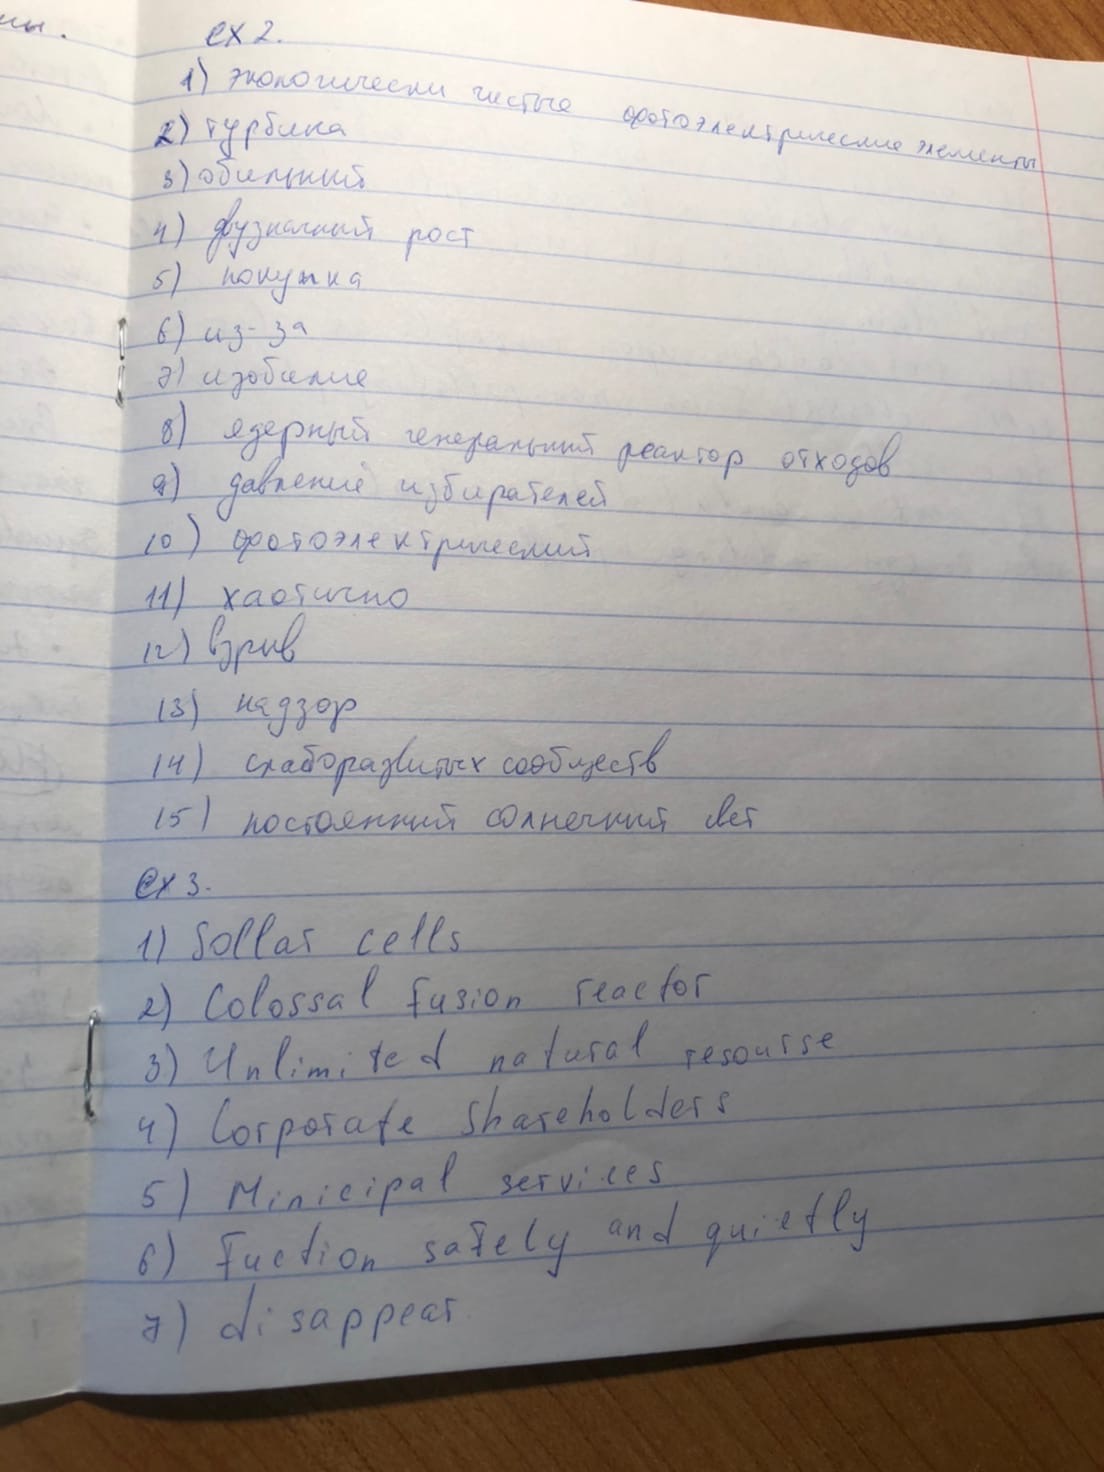 ны.
ex 2.
1) экологически чистые фотоэлектрические элементы
2) турбина
3) обильный
4) двузначный рост
5) покупка
6) из-за
7) изобилие
8) ядерный генеральный реактор отходов
9) давление избирателей
10) фотоэлектрический
11) хаотично
12) взрыв
13) надзор
14) слаборазвитых сообществ
15) постоянный солнечный свет
ex 3.
1) Sollar cells
2) Colossal fusion reactor
3) Unlimited natural resourse
4) Corporate shareholders
5) Minicipal services
6) Fuction safely and quietly
7) disappear